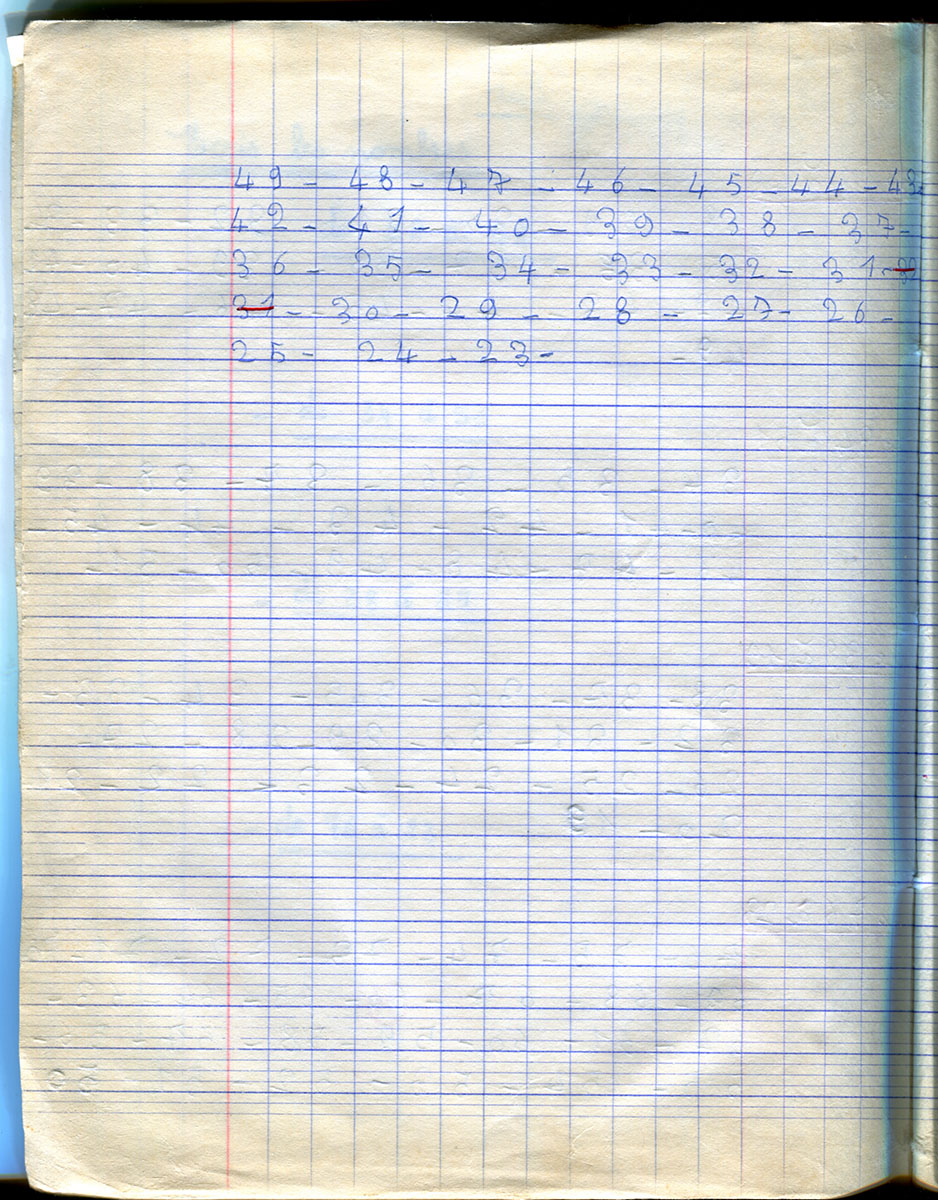 49 - 48 - 47 - 46 - 45 - 44 - 43
42 - 41 - 40 - 39 - 38 - 37 -
36 - 35 - 34 - 33 - 32 - 31 - 32
31 - 30 - 29 - 28 - 27 - 26 -
25 - 24 - 23 -